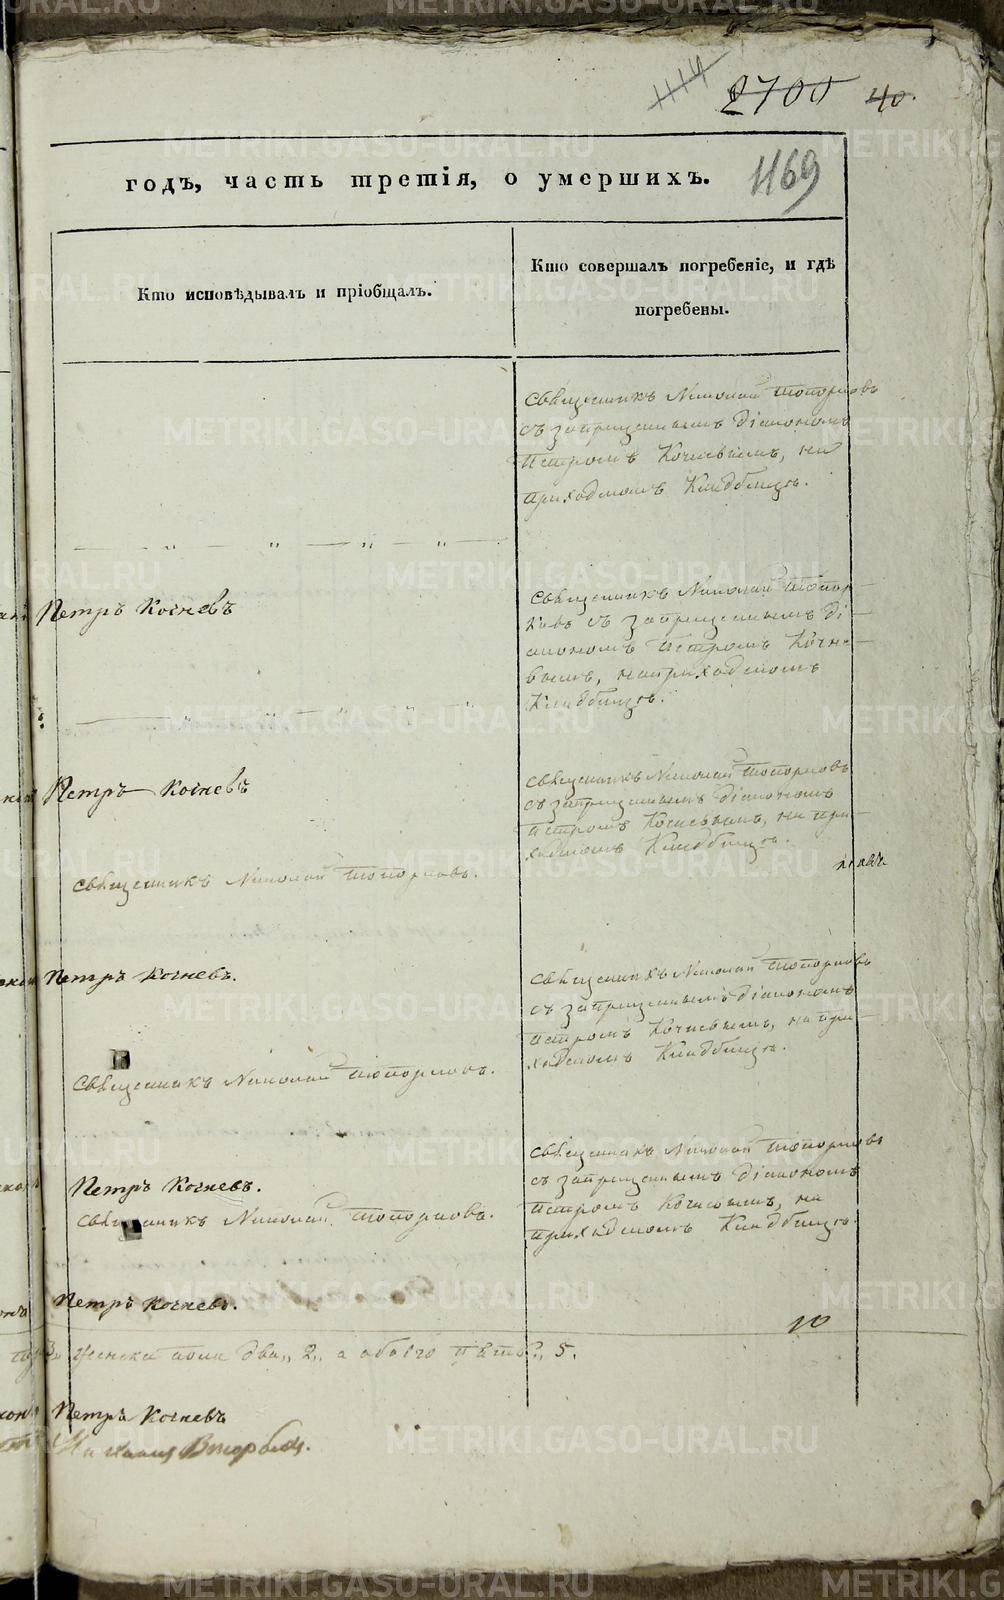 1114
2700 40.
годъ, часть третія, о умершихъ.
1169
Кто исповѣдывалъ и пріобщалъ.
Кто совершалъ погребеніе, и гдѣ
погребены.
Священникъ Николай Топорковъ
съ запрещеннымъ діакономъ
Петромъ Кочневымъ, на
приходскомъ Кладбищѣ.
Петръ Кочневъ
Священникъ Николай Топор-
ковъ съ запрещеннымъ ді-
акономъ Петромъ Кочне-
вымъ, на приходскомъ
Кладбищѣ.
Петръ Кочневъ
Священникъ Николай Топорковъ
съ запрещеннымъ діакономъ
Петромъ Кочневымъ, на при-
ходскомъ Кладбищѣ.
Священникъ Николай Топорковъ.
Петръ Кочневъ.
Священникъ Николай Топорковъ
съ запрещеннымъ діакономъ
Петромъ Кочневымъ, на при-
ходскомъ Кладбищѣ.
Священникъ Николай Топорковъ.
Священникъ Николай Топорковъ
съ запрещеннымъ діакономъ
Петромъ Кочневымъ, на
приходскомъ Кладбищѣ.
Петръ Кочневъ.
Священникъ Николай Топорковъ.
Петръ Кочневъ.
женска пола два,, 2,, а обоего пять,, 5.
Петръ Кочневъ
METRIKI.GASO-URAL.RU